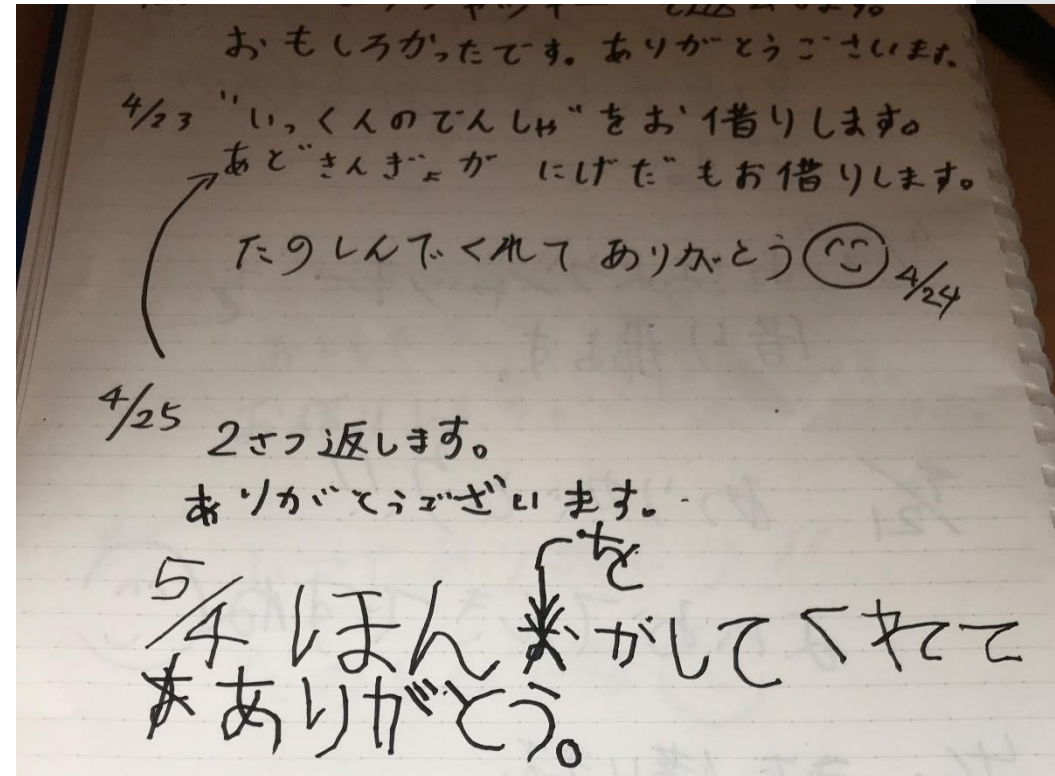 おもしろかったです。ありがとうございます。
4/23 "いっくんのでんしゃ"をお借りします。
あと"さんぎょがにげだ"もお借りします。
たのしんでくれてありがとう 4/24
4/25 2さつ返します。
ありがとうございます。
を
5/4 ほんかしてくれて
ありがとう。